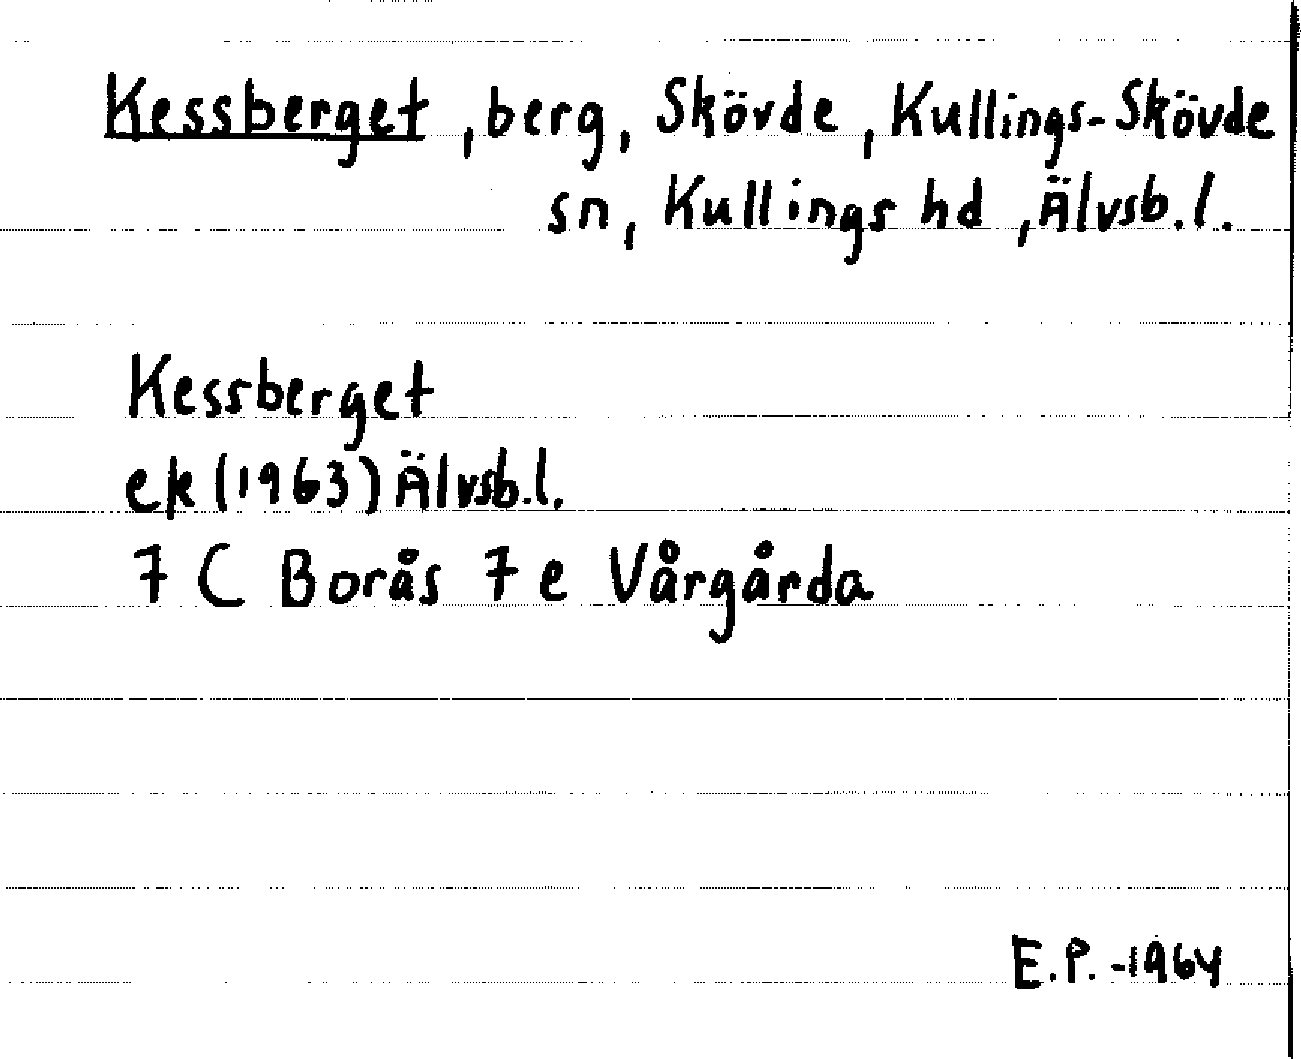 Kessberget, berg, Skövde, Kullings-Skövde
sn, Kullings hd, Älvsb.l.
Kessberget
ek (1963) Älvsb.l.
7 C Borås 7 e Vårgårda
E.P. -1964